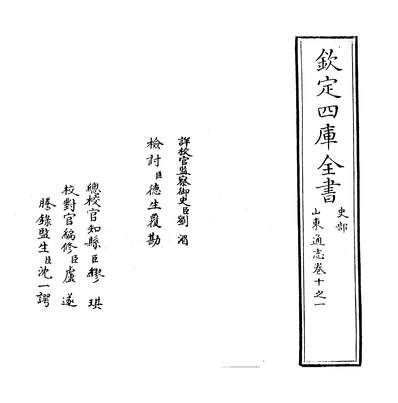 欽定四庫全書
史部
山東通志卷十之一
詳校官監察御史臣劉湄
檢討臣德生覆勘
總校官知縣臣繆琪
校對官編修臣盧遂
謄錄監生臣沈一諤